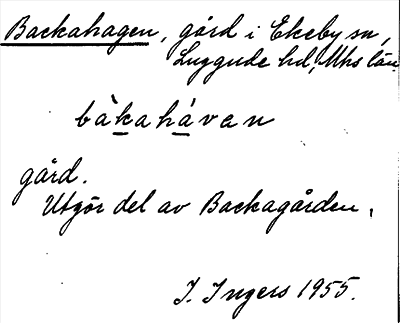 Backahagen, gård i Ekeby sn,
Luggude hd, Mhs län
bàkaháven
gård.
Utgör del av Backagården.
I. Ingers 1955.